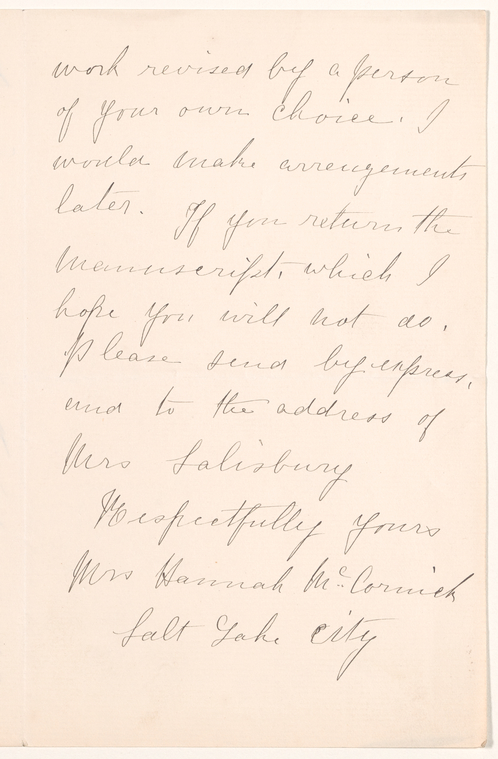 work revised by a person
of your own choice. I
would make arrengements
later. If you return the
manuscript, which I
hope you will not do.
Please send by express,
and to the address of
Mrs Salisbury
Respectfully yours
Mrs Hannah McCornick
Salt Lake City